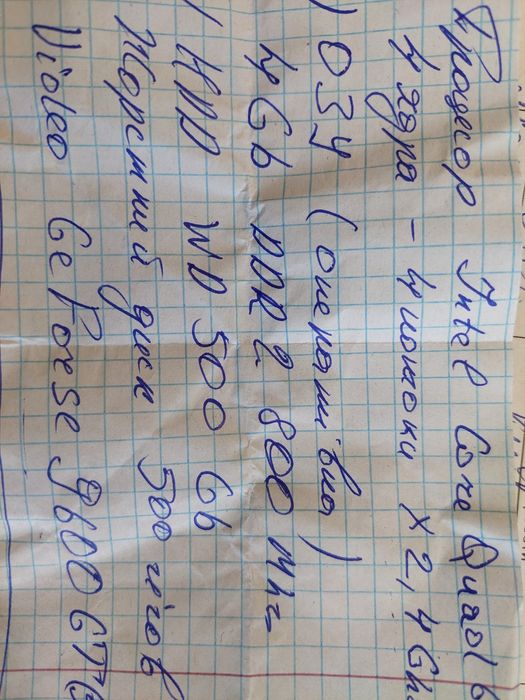 Процесор Intel Core Quad
4 ядра - 4 потоки x 2,4 Gh
) ОЗУ (оперативна)
4 Gb DDR 2 800 Mhz
/ HDD WD 500 Gb
Жорсткий диск 500 гігов
Video GeForse 9600 GT